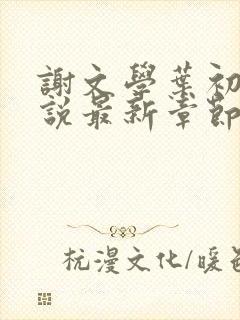 謝文學葉初
說最新章節
杭漫文化/暖